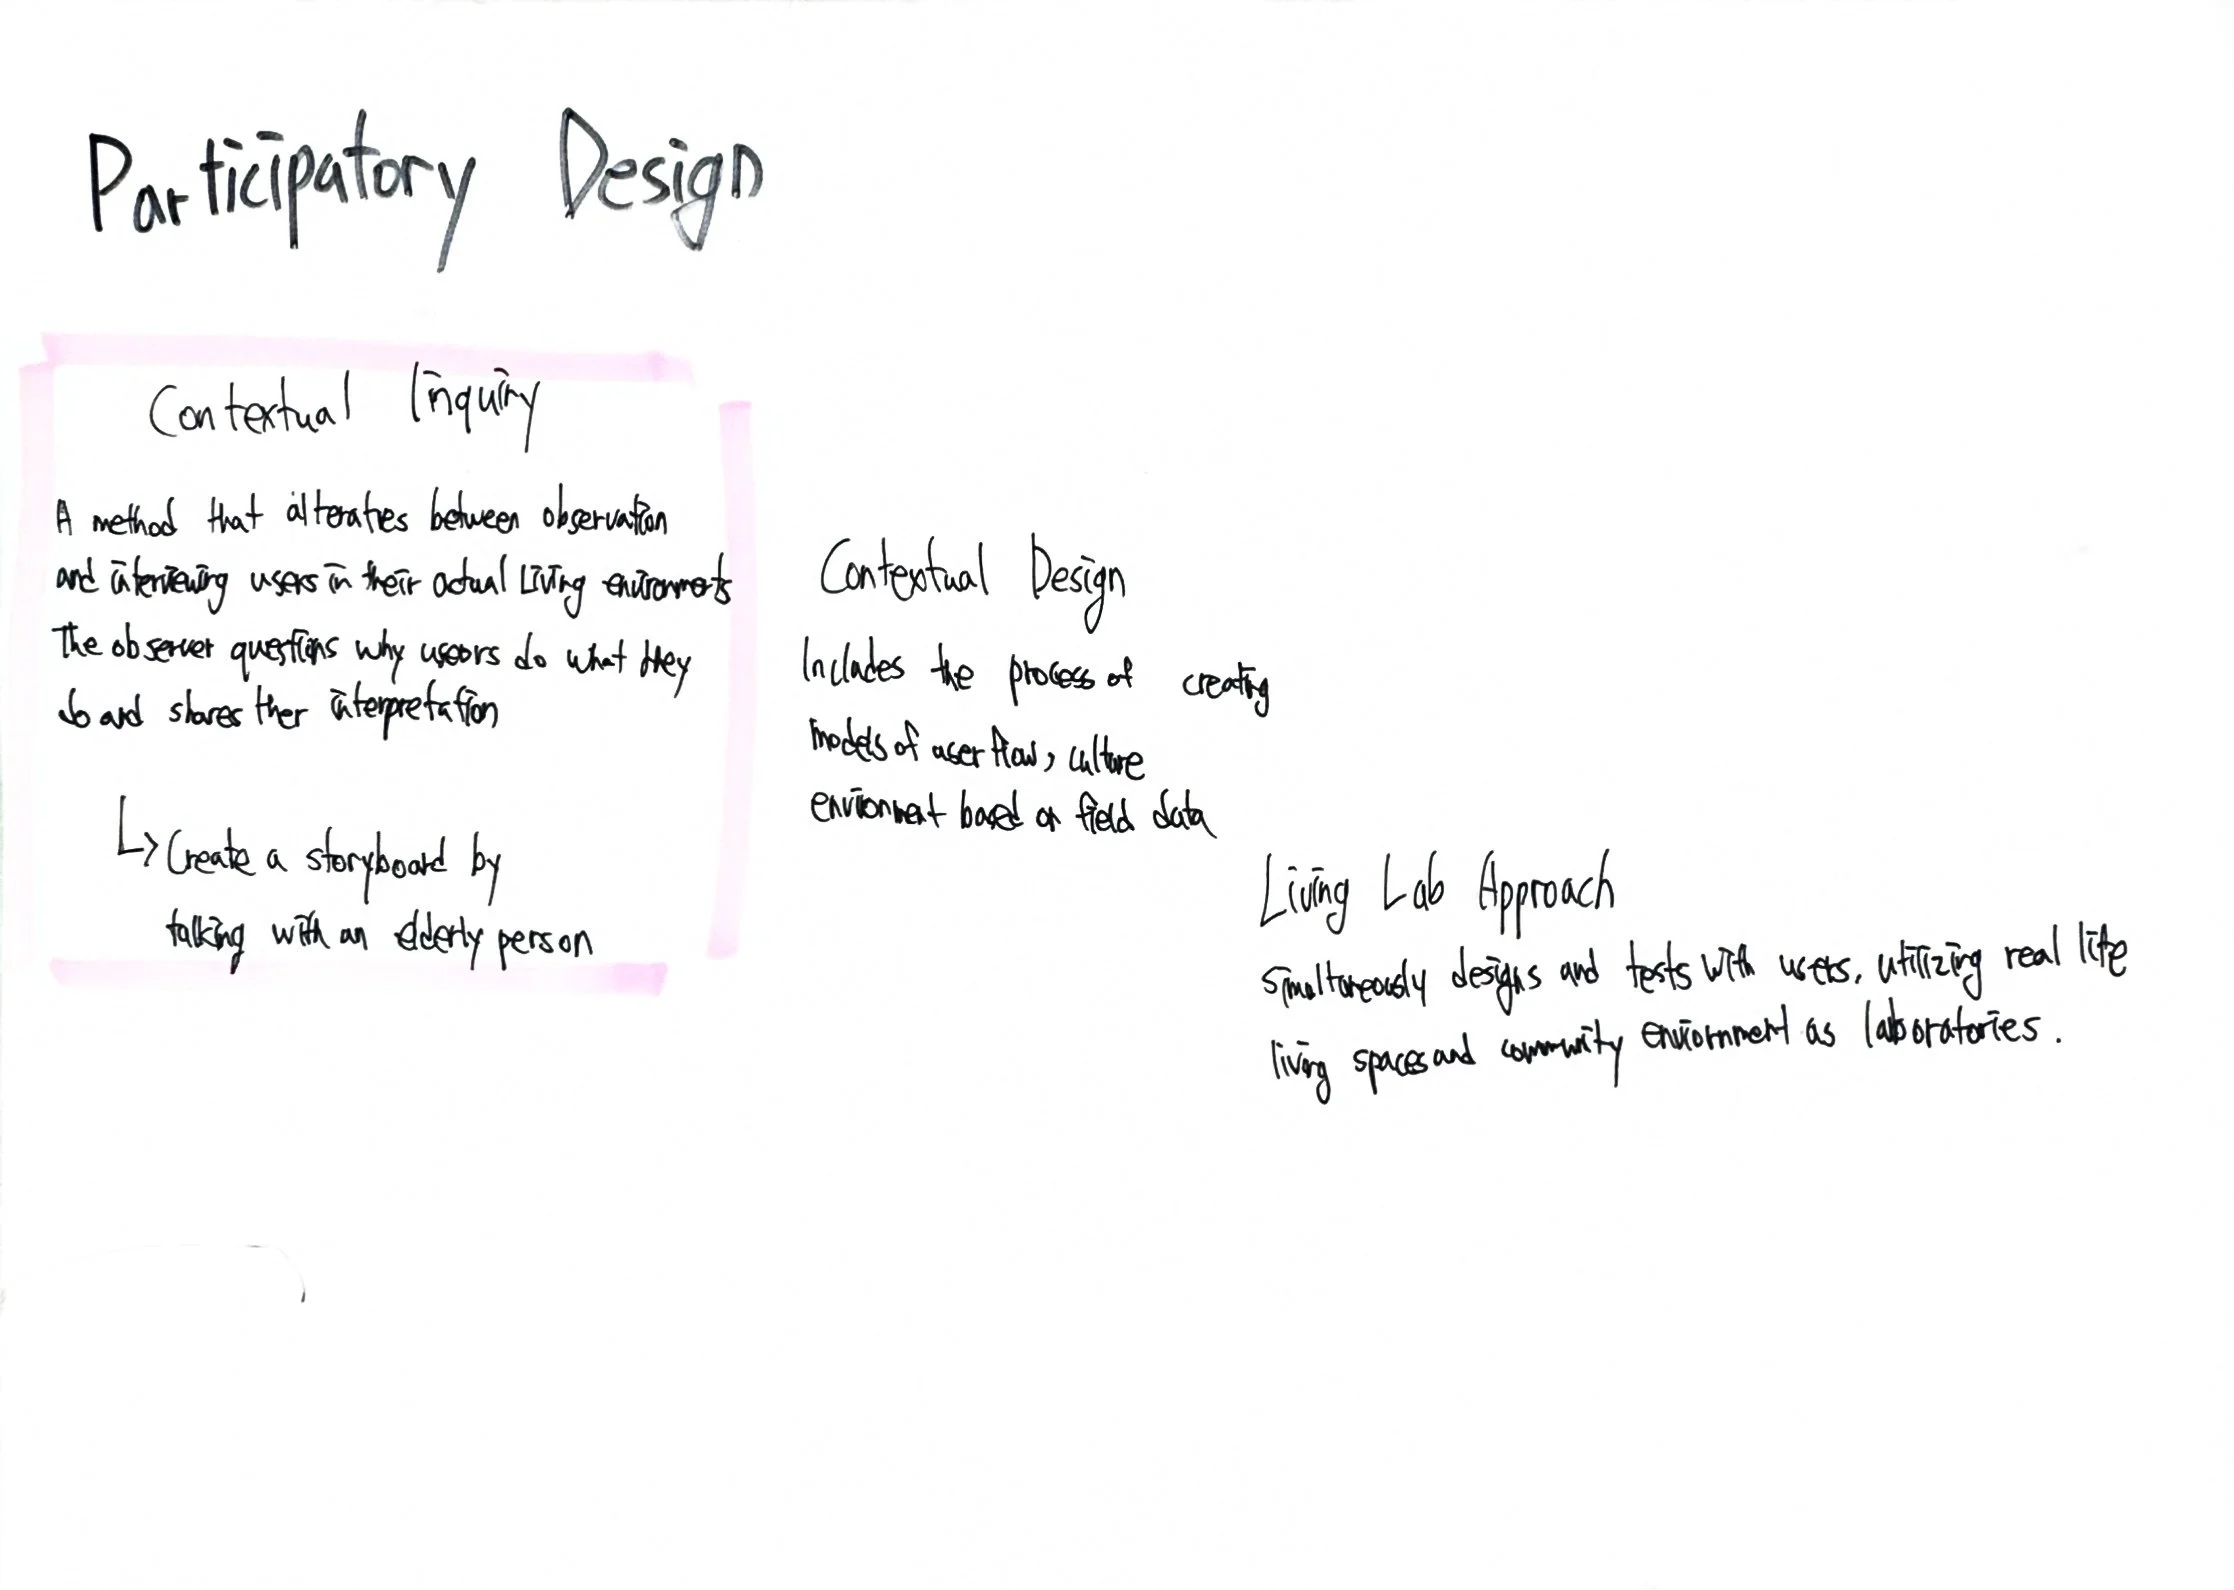 Participatory Design
Contextual Inquiry
A method that alterates between observation
and interviewing users in their actual Living environments
The observer questions why useors do what they
do and shares ther interpretation
↳ Create a storyboard by
talking with an elderly person
Contextual Design
Includes the process of creating
models of user flow, culture
environment based on field data
Living Lab Approach
Simultaneously designs and tests with users, utilizing real life
living spaces and community enviornment as laboratories.